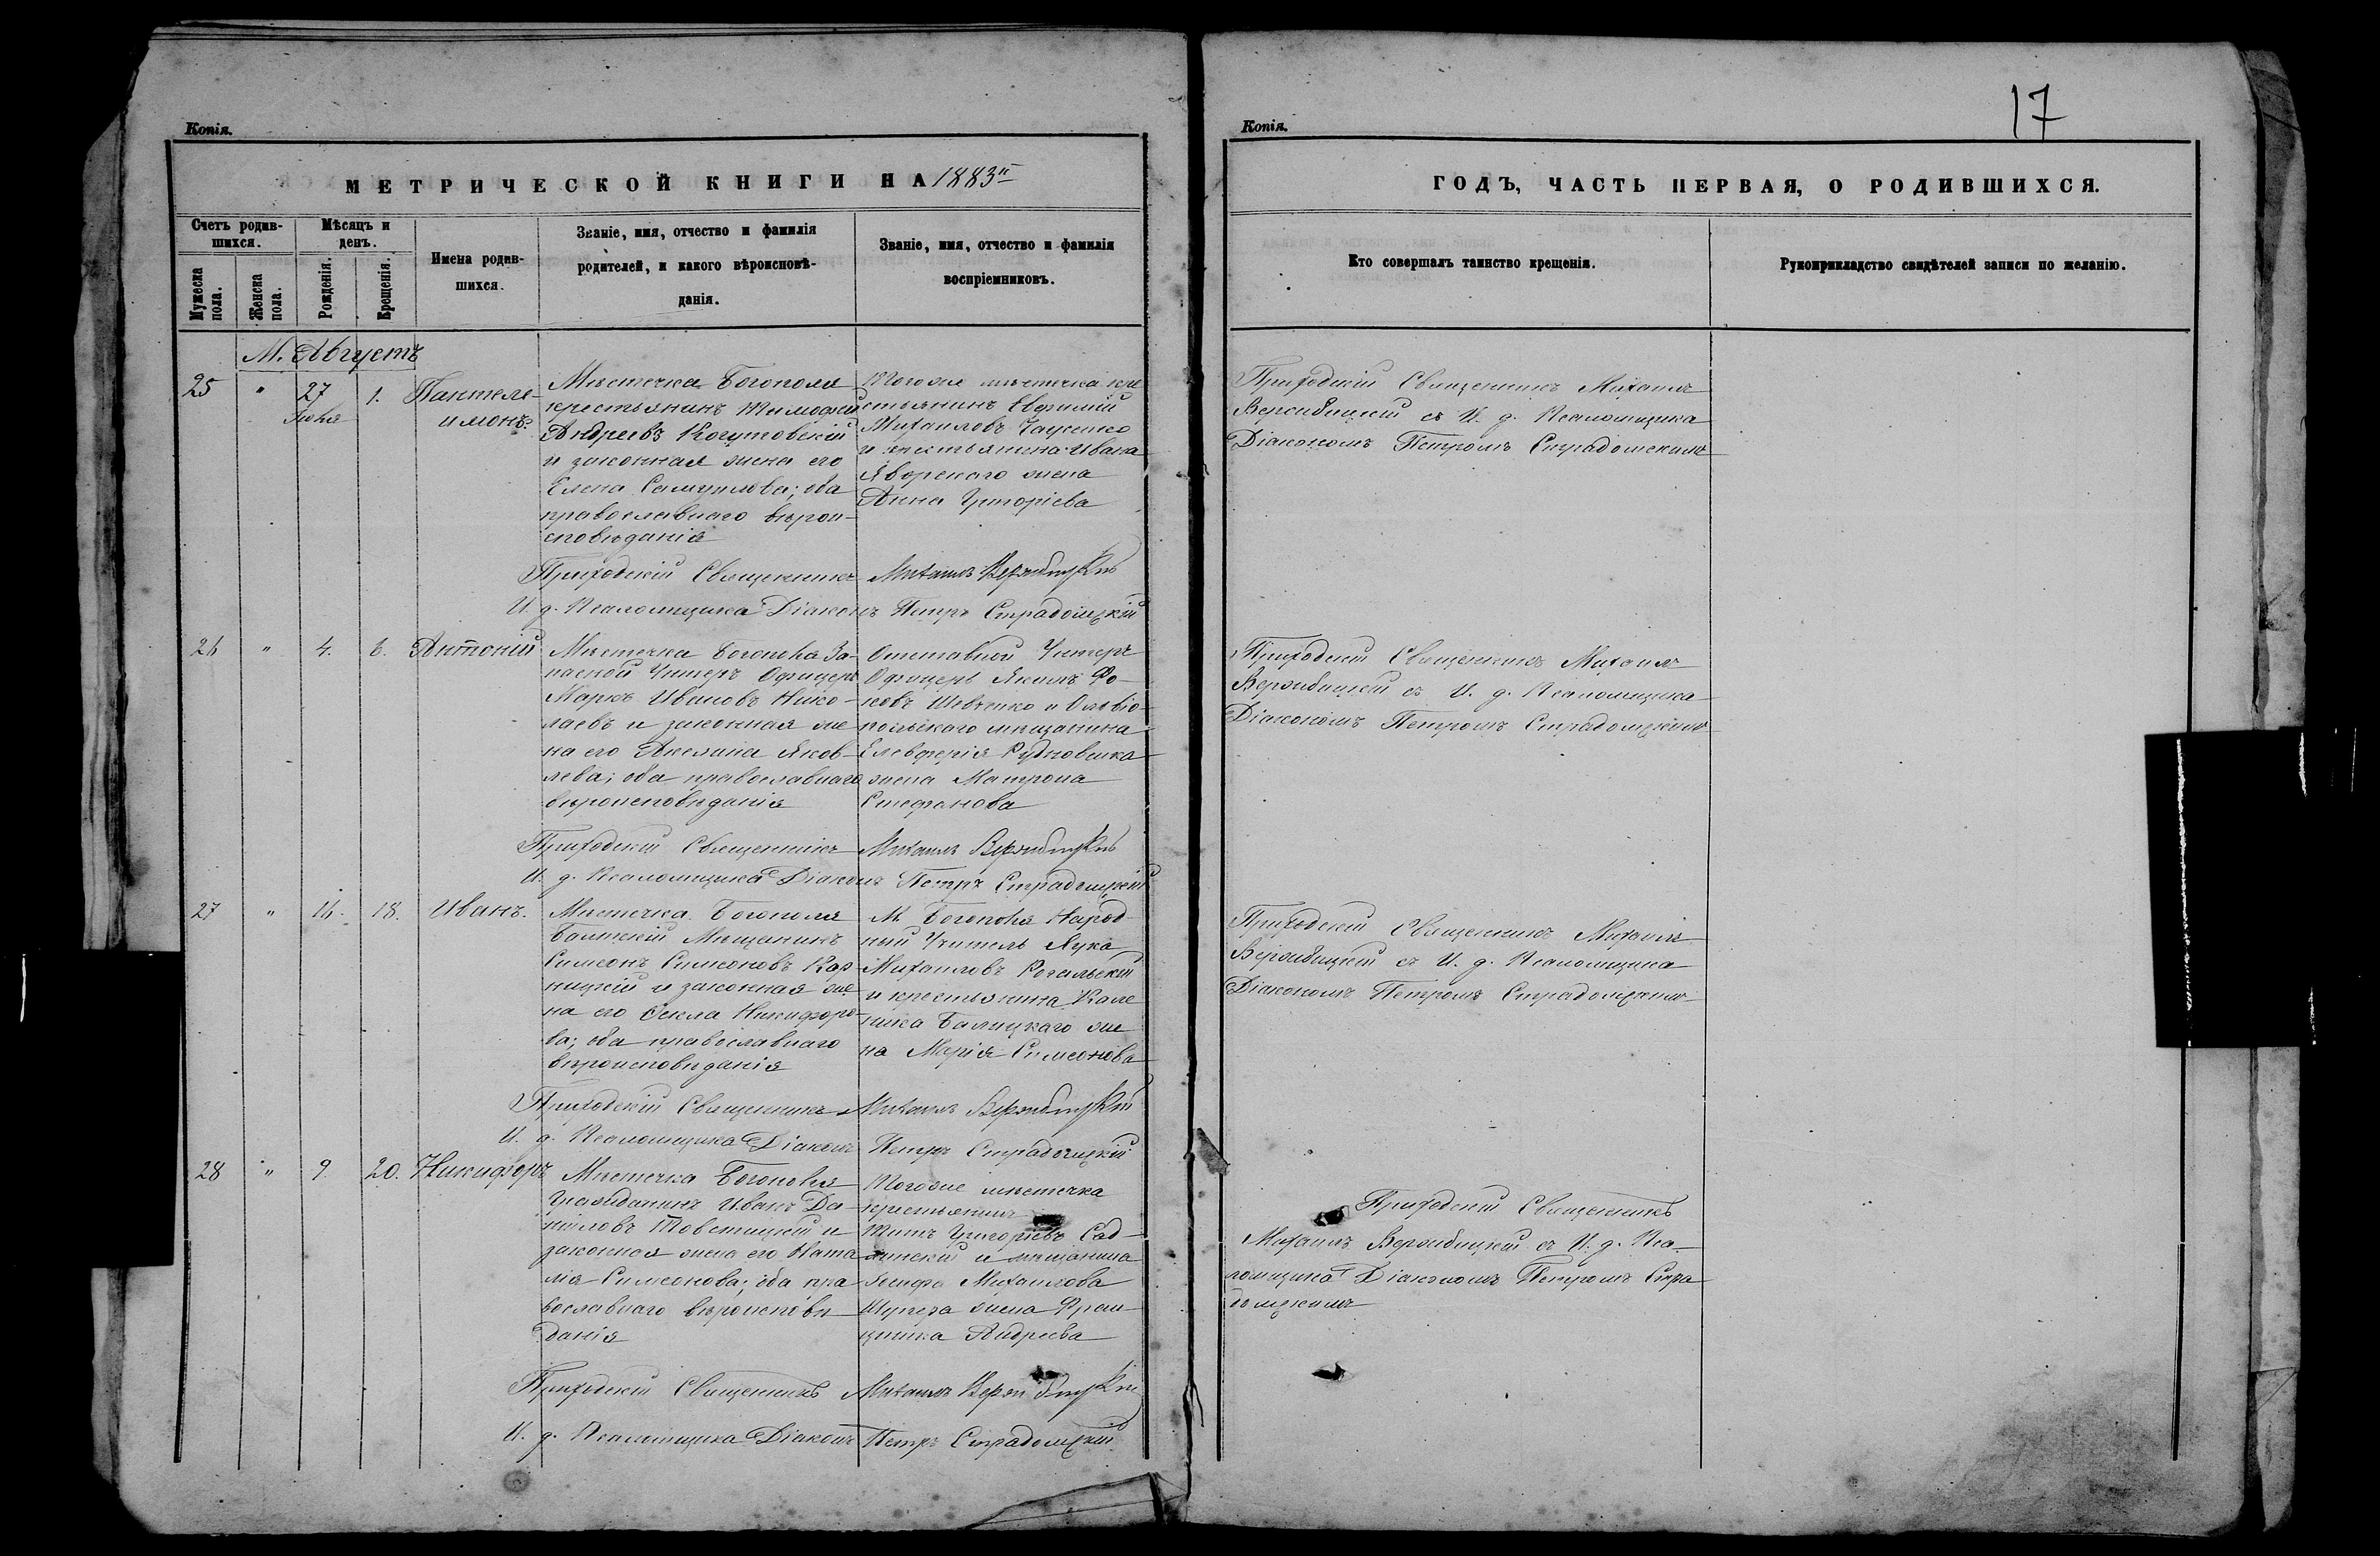 Копія.
МЕТРИЧЕСКОЙ КНИГИ НА 1883й
Счетъ родив-
шихся.
Мѣсяцъ и
день.
Имена родив-
шихся.
Званіе, имя, отчество и фамилія
родителей, и какого вѣроисповѣ-
данія.
Званіе, имя, отчество и фамилія
воспріемниковъ.
Мужеска
пола.
Женска
пола.
Рожденія.
Крещенія.
М. Августъ
25 " 27 Іюля 1. Пантеле-
имонъ.
Мѣстечка Богополя
крестьянинъ Тимофей
Андреевъ Когутовскій
и законная жена его
Елена Самуилова; оба
православнаго вѣрои-
сповѣданія
Тогоже мѣстечка кре
стьянинъ Евфимій
Михаиловъ
и крестьянина Ивана
Яворскаго жена
Анна Григоріева
Приходскій Священникъ Михаилъ Вержбицкій
И. д. Псаломщика Діаконъ Петръ Страдомскій
26 " 4. 6. Антоній
Мѣстечка Богополя За-
пасной Унтеръ Офицеръ
Маркъ Ивановъ Нико-
лаевъ и законная же
на его Акелина Яков-
лева; оба православнаго
вѣроисповѣданія
Отставной Унтеръ
Офицеръ Якимъ Фо-
ковъ Шевченко и Ольвіо-
польскаго мѣщанина
Елевферія жена Матрона
Стефанова
Приходскій Священникъ Михаилъ Вержбицкій
И. д. Псаломщика Діаконъ Петръ Страдомскій
27 " 16. 18. Иванъ.
Мѣстечка Богополя
Балтскій Мѣщанинъ
Симеонъ Симеоновъ Кар-
ницкій и законная же
на его Фекла Никифоро-
ва; оба православнаго
вѣроисповѣданія
М. Богополя Народ
ный Учитель Лука
Михаиловъ Рогальскій
и крестьянина Кале
ника Балицкаго же
на Марія Симеонова
Приходскій Священникъ Михаилъ Вержбицкій
И. д. Псаломщика Діаконъ Петръ Страдомскій
28 " 9 20. Никифоръ
Мѣстечка Богополя
Гражданинъ Иванъ Да-
ніиловъ Товстицкій и
законная жена его Ната
лія Симеонова; оба пра
вославнаго вѣроисповѣ
данія
Тогоже мѣстечка
крестьянинъ
Титъ Григоріевъ Сад-
и мѣщанина
Іосифа Михаилова
жена Фран-
цишка Андреева
Приходскій Священникъ Михаилъ Вержбицкій
И. д. Псаломщика Діаконъ Петръ Страдомскій
17
Копія.
ГОДЪ, ЧАСТЬ ПЕРВАЯ, О РОДИВШИХСЯ.
Кто совершалъ таинство крещенія.
Рукоприкладство свидѣтелей записи по желанію.
Приходскій Священникъ Михаилъ
Вержбицкій съ И. д. Псаломщика
Діакономъ Петромъ Страдомскимъ
Приходскій Священникъ Михаилъ
Вержбицкій съ И. д. Псаломщика
Діакономъ Петромъ Страдомскимъ
Приходскій Священникъ Михаилъ
Вержбицкій съ И. д. Псаломщика
Діакономъ Петромъ Страдомскимъ
Приходскій Священникъ
Михаилъ Вержбицкій съ И. д. Пса-
ломщика Діакономъ Петромъ Стра
домскимъ